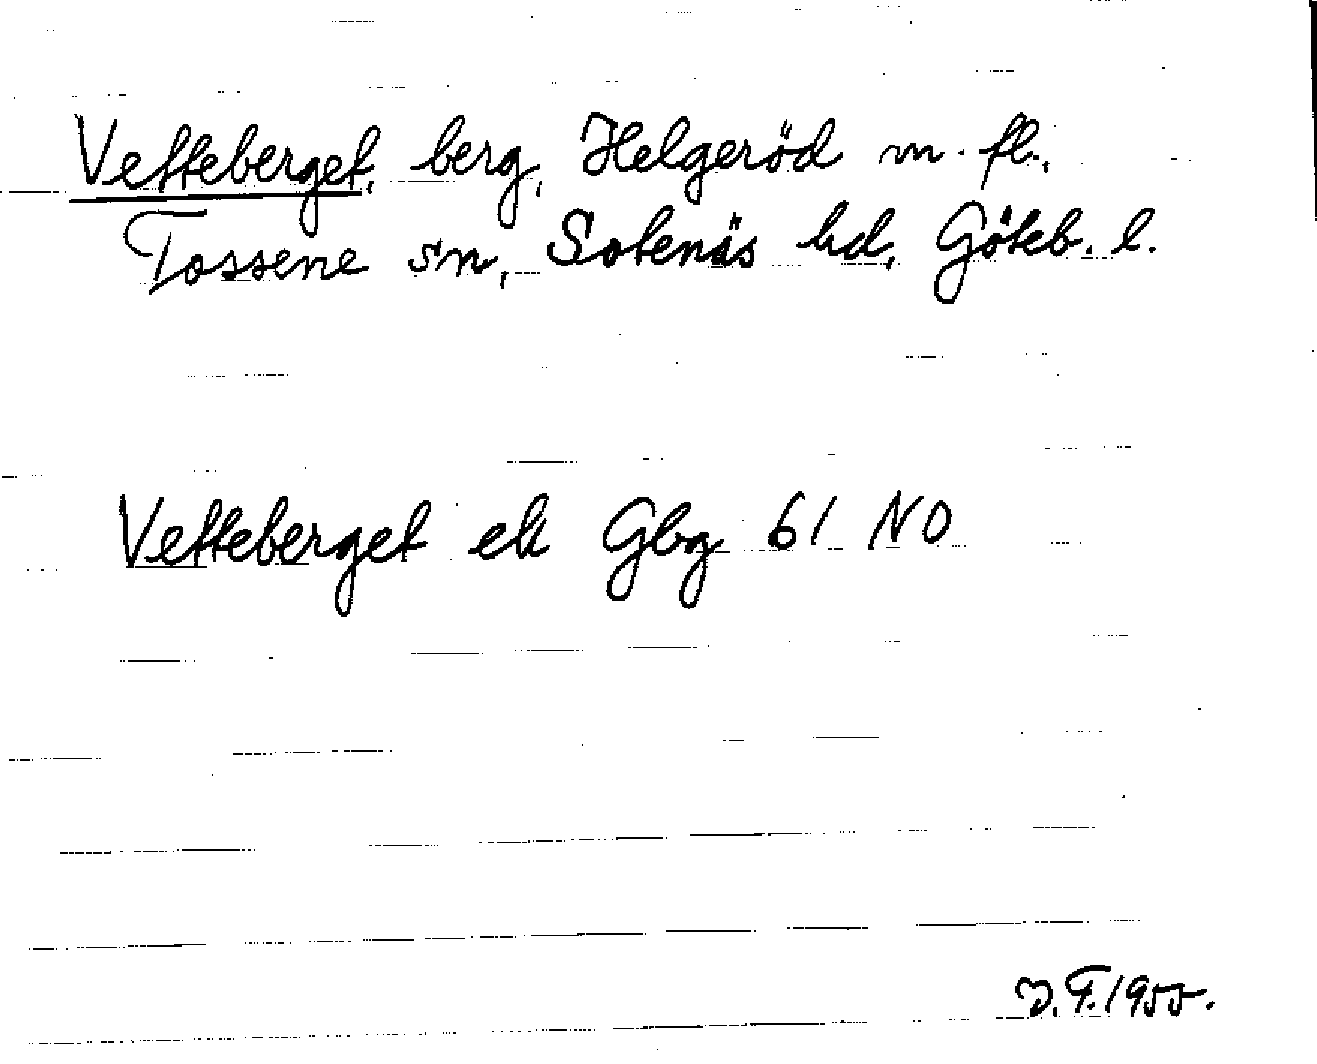 Vetteberget, berg, Helgeröd m. fl.,
Tossene sn, Sotenäs hd, Göteb. l.
Vetteberget ek Gbg 61 NO
D.F. 1955.